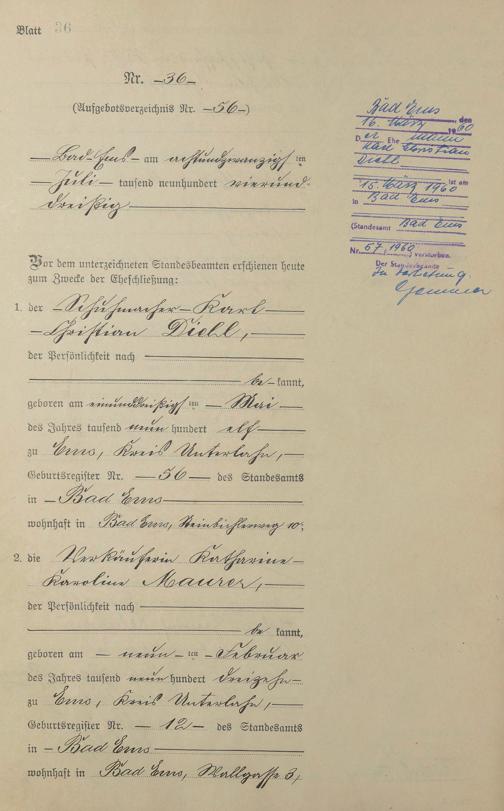 Blatt 36
Nr. 36
(Aufgebotsverzeichnis Nr. 56)
Bad Ems am achtundzwanzigsten
Juli tausend neunhundert vierund-
dreißig
Vor dem unterzeichneten Standesbeamten erschienen heute
zum Zwecke der Eheschließung:
1. der Schuhmacher Karl
Christian Diehl,
der Persönlichkeit nach
be kannt,
geboren am einunddreißigsten Mai
des Jahres tausend neun hundert elf
zu Ems, Kreis Unterlahn,
Geburtsregister Nr. 56 des Standesamts
in Bad Ems
wohnhaft in Bad Ems, 10.
2. die Verkäuferin Katharine
Karoline Maurer,
der Persönlichkeit nach
be kannt,
geboren am neunten Februar
des Jahres tausend neun hundert dreizehn
zu Ems, Kreis Unterlahn,
Geburtsregister Nr. 12 des Standesamts
in Bad Ems
wohnhaft in Bad Ems, Wallgasse 3,
Bad Ems, den
16. März 1960
Der Ehemann
Karl Christian
Diehl
ist am
15. März 1960
in Bad Ems
(Standesamt Bad Ems
Nr. 67/1960) verstorben.
Der Standesbeamte
In Vertretung.